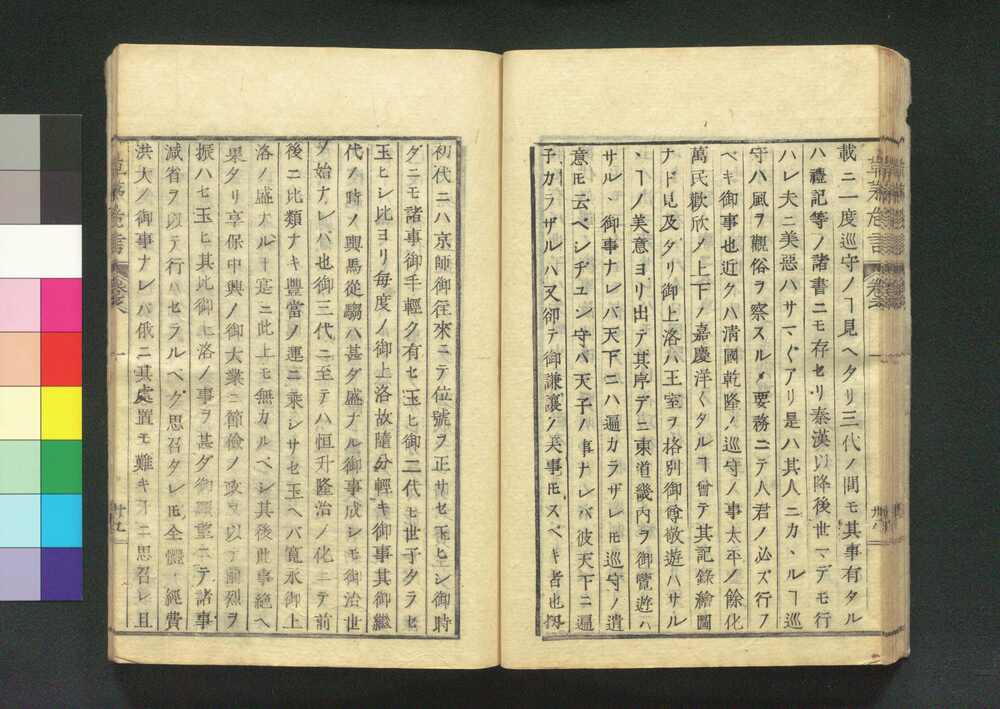 載ニ一度巡守ノヿ見ヘタリ三代ノ間モ其事有タル
ハ禮記等ノ諸書ニモ存セリ秦漢以降後世マデモ行
ハレ夫ニ美惡ハサマ〴〵アリ是ハ其人ニカヽルヿ巡
守ハ風ヲ觀俗ヲ察スルノ要務ニテ人君ノ必ズ行フ
ベキ御事也近クハ淸國乾隆ノ巡守ノ事太平ノ餘化
萬民歡欣シ上下ノ嘉慶洋〱タルヿ曾テ其記錄繪圖
ナド見及ダリ御上洛ハ王室ヲ格別御尊敬遊ハサル
ヽヿノ美意ヨリ出テ其序デニ東道畿內ヲ御覽遊ハ
サルヽ御事ナレバ天下ニハ遍カラザレ𪜈巡守ノ遺
意𪜈云ベシヂユン守ハ天子ノ事ナレバ彼天下ニ遍
子カラザルハ又卻テ御謙讓ノ美事𪜈スベキ者也
初代ニハ京師御往來ニテ位號ヲ正サセ玉ヒシ御時
ダニモ諸事御手輕ク有セ玉ヒ御二代モ世子タラセ
玉ヒシ比ヨリ每度ノ御上洛故隨分輕キ御事其御繼
代ノ時ノ輿馬從騶ハ甚ダ盛ナル御事成シモ御治世
ノ始ナレバ也御三代ニ至テハ恒升隆治ノ化ニテ前
後ニ比類ナキ豐富ノ運ニ乘シサセ玉ヘバ寬永御上
洛ノ盛ナルヿ寔ニ此上モ無カルベシ其後此事絕ヘ
果タリ享保中興ノ御大業ニ節儉ノ政ヲ以テ前烈ヲ
振ハセ玉ヒ其比御上洛ノ事ヲ甚ダ御望ニテ諸事
減省ヲ以テ行ハセラルベク思召タレ𪜈全體ノ經費
洪大ノ御事ナレバ俄ニ其處置モ難キヿニ思召レ且